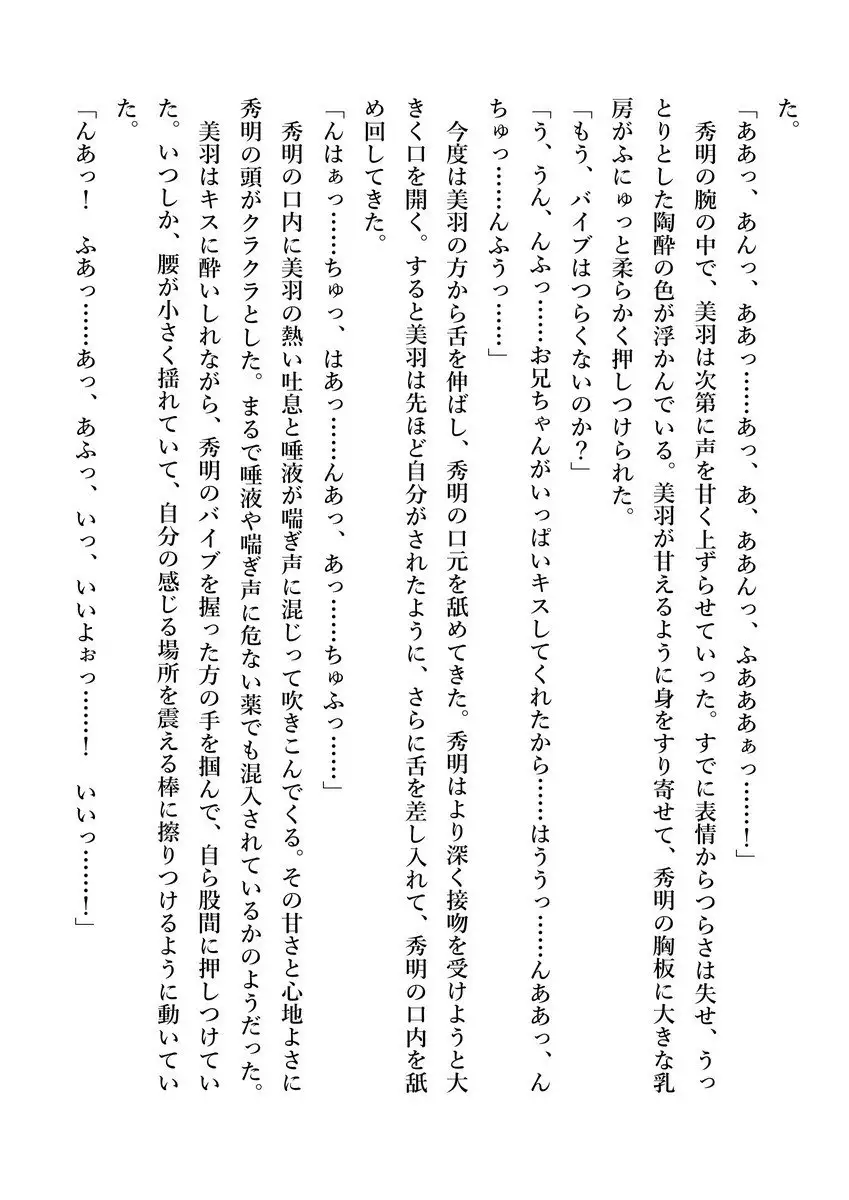 た。
「ああっ、あんっ、ああっ……あっ、あ、ああんっ、ふあああぁっ……！」
秀明の腕の中で、美羽は次第に声を甘く上ずらせていった。すでに表情からつらさは失せ、うっ
とりとした陶酔の色が浮かんでいる。美羽が甘えるように身をすり寄せて、秀明の胸板に大きな乳
房がふにゅっと柔らかく押しつけられた。
「もう、バイブはつらくないのか？」
「う、うん、んふっ……お兄ちゃんがいっぱいキスしてくれたから……はううっ……んああっ、ん
ちゅっ……んふうっ……」
今度は美羽の方から舌を伸ばし、秀明の口元を舐めてきた。秀明はより深く接吻を受けようと大
きく口を開く。すると美羽は先ほど自分がされたように、さらに舌を差し入れて、秀明の口内を舐
め回してきた。
「んはぁっ……ちゅっ、はあっ……んあっ、あっ……ちゅふっ……」
秀明の口内に美羽の熱い吐息と唾液が喘ぎ声に混じって吹きこんでくる。その甘さと心地よさに
秀明の頭がクラクラとした。まるで唾液や喘ぎ声に危ない薬でも混入されているかのようだった。
美羽はキスに酔いしれながら、秀明のバイブを握った方の手を掴んで、自ら股間に押しつけてい
た。いつしか、腰が小さく揺れていて、自分の感じる場所を震える棒に擦りつけるように動いてい
た。
「んあっ！　ふあっ……あっ、あふっ、いっ、いいよぉっ……！　いいっ……！」